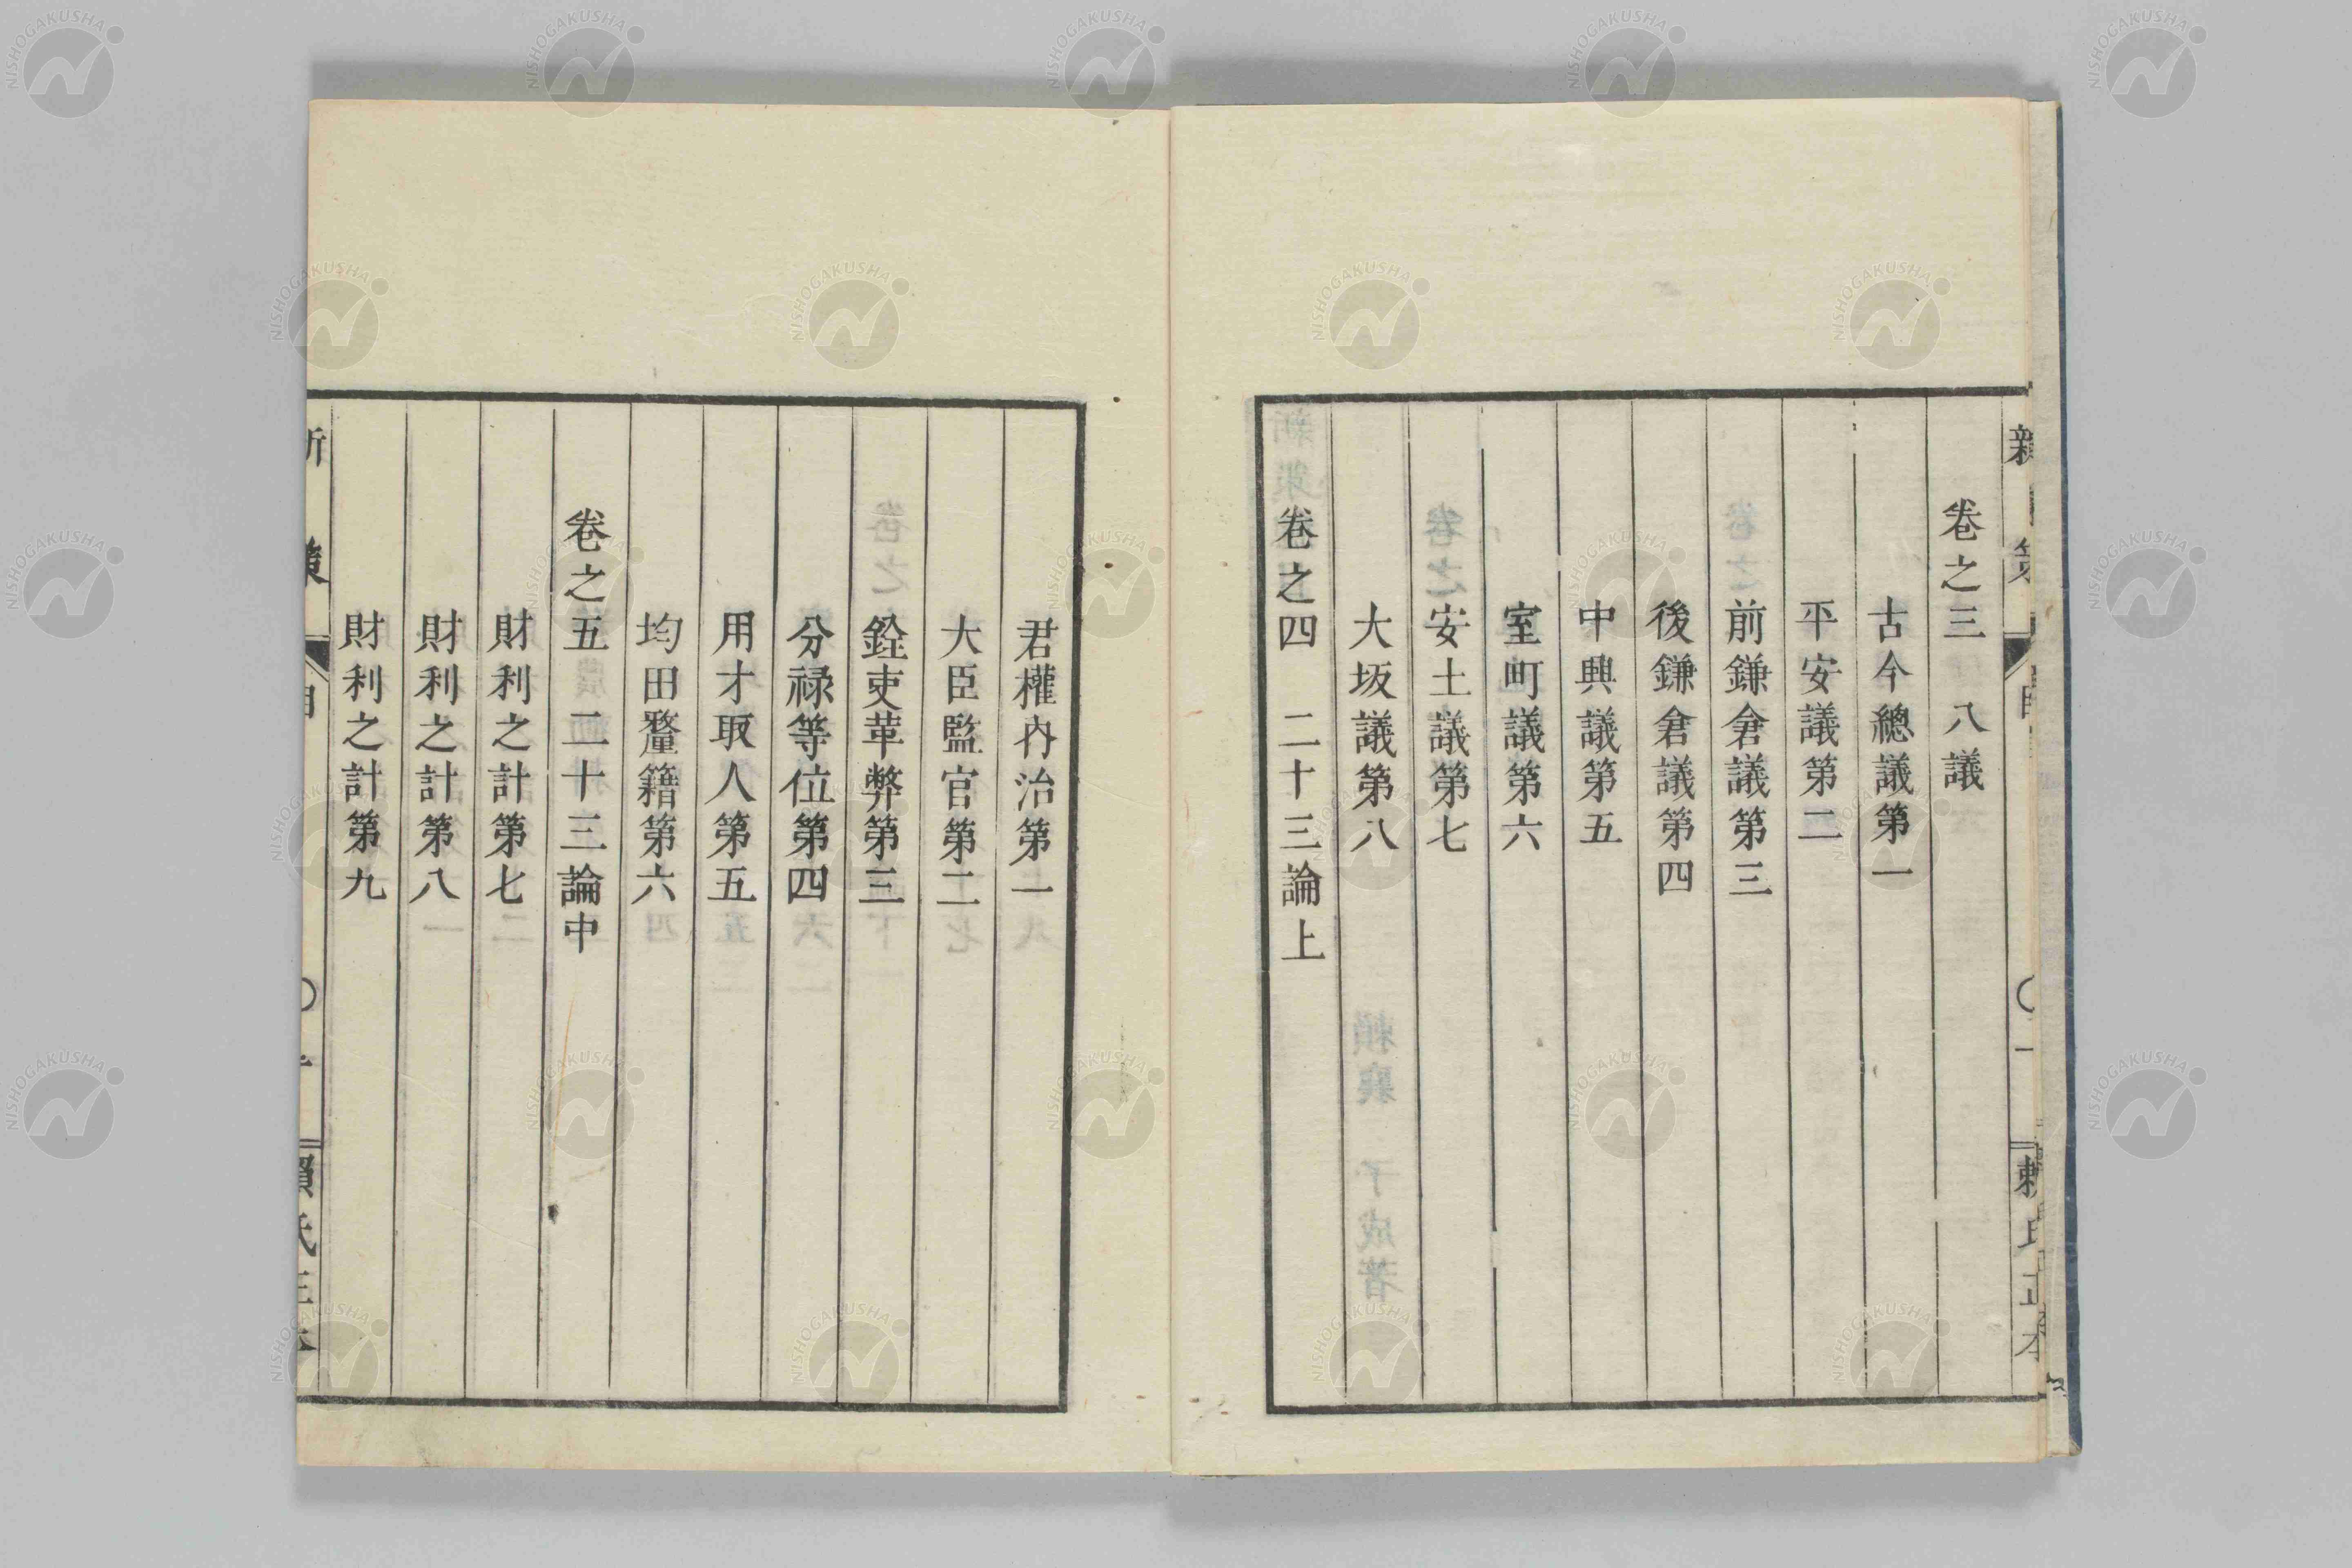 卷之三 八議
古今總議第一
平安議第二
前鎌倉議第三
後鎌倉議第四
中興議第五
室町議第六
安土議第七
大坂議第八
卷之四 二十三論上
君權內治第一
大臣監官第二
銓吏革弊第三
分祿等位第四
用才取人第五
均田釐籍第六
卷之五 二十三論中
財利之計第七
財利之計第八
財利之計第九
NISHOGAKUSHA